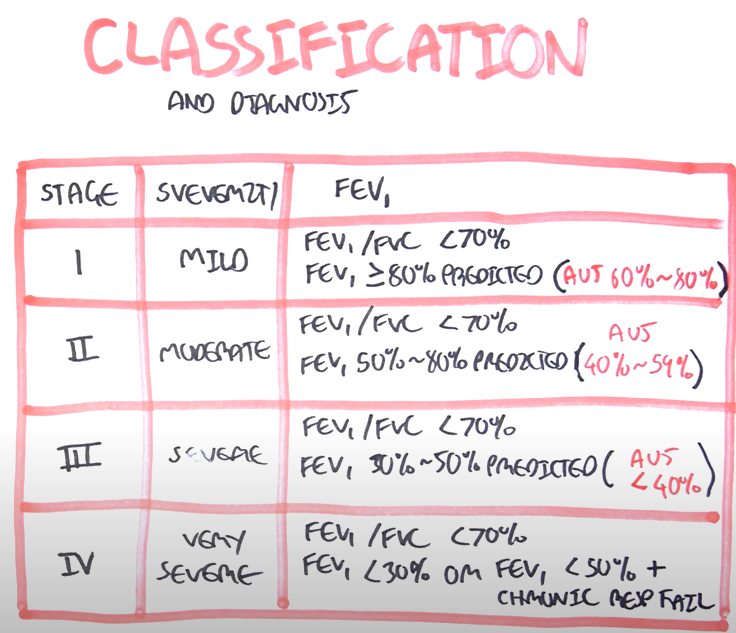 CLASSIFICATION
AND DIAGNOSIS
STAGE SVEVERITY FEV₁
I MILD FEV₁/FVC <70%
FEV₁ ≥80% PREDICTED (AUS 60%~80%)
II MODERATE FEV₁/FVC <70%
FEV₁ 50%~80% PREDICTED (AUS 40%~59%)
III SEVERE FEV₁/FVC <70%
FEV₁ 30%~50% PREDICTED (AUS <40%)
IV VERY SEVERE FEV₁/FVC <70%
FEV₁ <30% OR FEV₁ <50% +
CHRONIC RESP FAIL